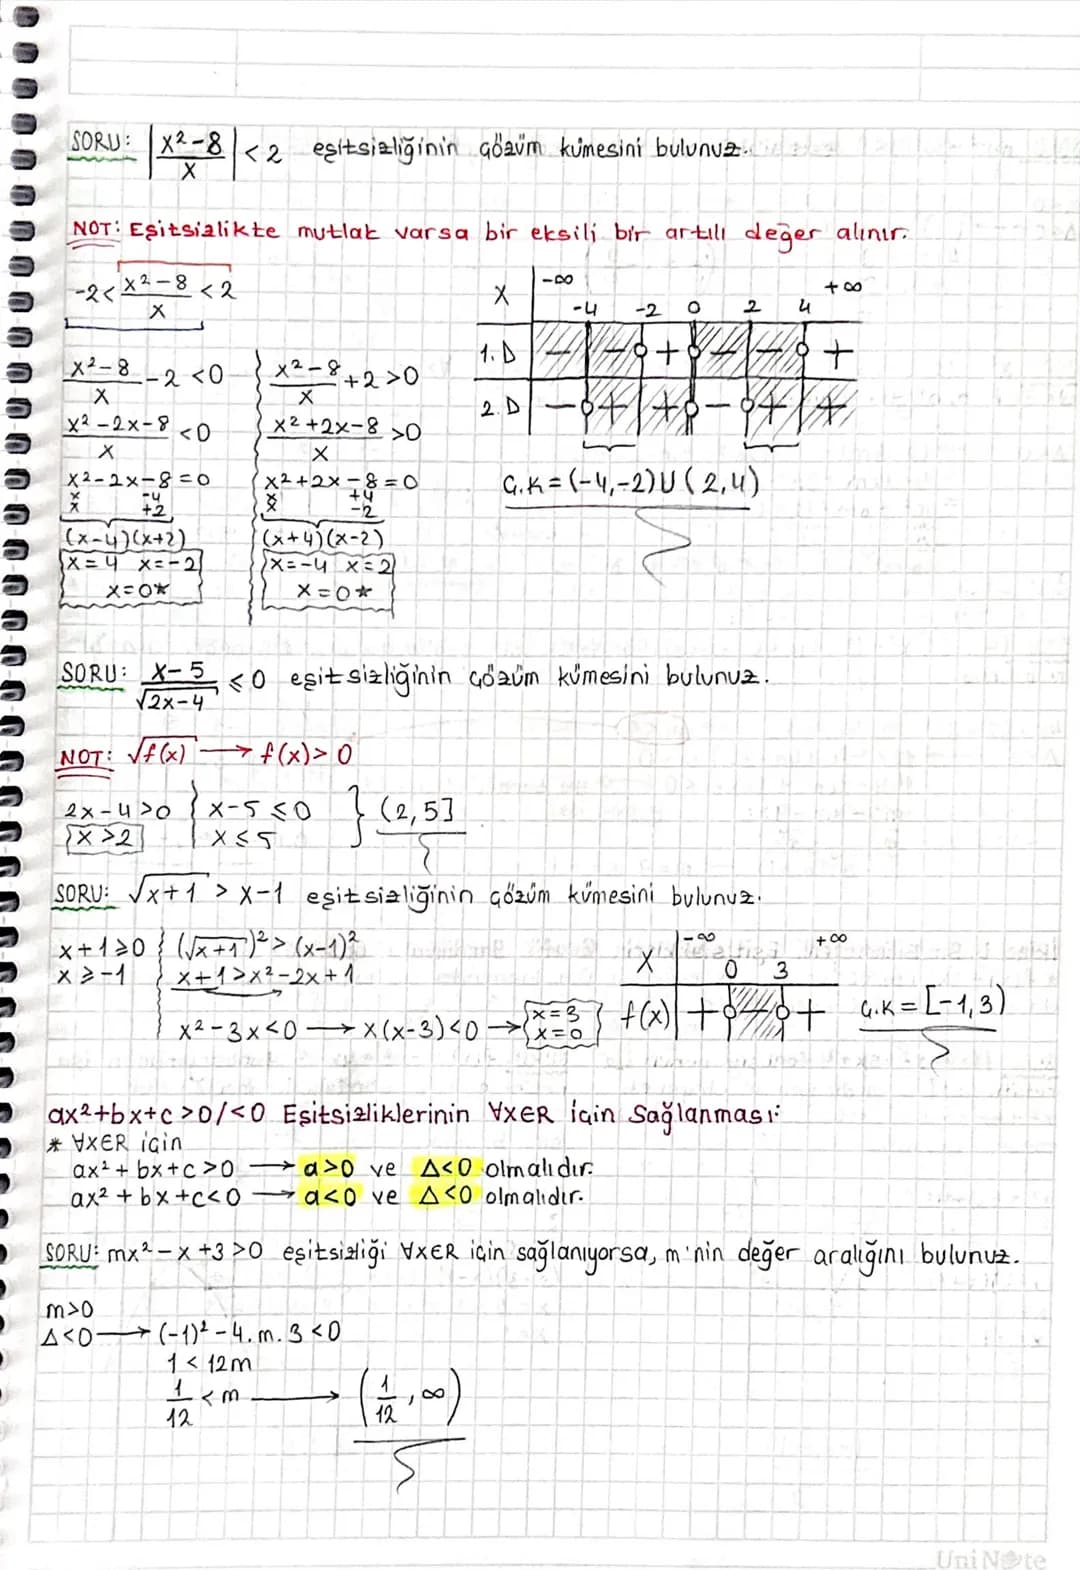 SORU: |x²-8/x| < 2 eşitsizliğinin çözüm kümesini bulunuz.
NOT: Eşitsizlikte mutlak varsa bir eksili bir artılı değer alınır.
-2 < x²-8/x < 2
x²-8/x - 2 < 0
x²-2x-8/x < 0
x²-2x-8=0
x -4
x +2
(x-4)(x+2)
x=4 x=-2
x=0*
x²-8/x + 2 > 0
x²+2x-8/x > 0
x²+2x-8=0
x +4
x -2
(x+4)(x-2)
x=-4 x=2
x=0*
x -∞ -4 -2 0 2 4 +∞
1. D - - + - - +
2. D - + + - + +
Ç.K=(-4,-2)U(2,4)
SORU: x-5/√2x-4 ≤ 0 eşitsizliğinin çözüm kümesini bulunuz.
NOT: √f(x) → f(x)> 0
2x-4>0 } x-5 ≤ 0 } (2,5]
x>2 x ≤ 5
SORU: √x+1 > x-1 eşitsizliğinin çözüm kümesini bulunuz.
x+1⩾0 } (√x+1)² > (x-1)²
x⩾-1 x+1>x²-2x+1
x²-3x<0 → x(x-3)<0 → x=3 x=0
x -∞ 0 3 +∞
f(x) + - + Ç.K=[-1,3)
ax²+bx+c >0/<0 Eşitsizliklerinin ∀xER için Sağlanması:
* ∀xER için
ax²+bx+c >0 → a>0 ve Δ<0 olmalıdır.
ax²+bx+c<0 → a<0 ve Δ<0 olmalıdır.
SORU: mx²-x+3>0 eşitsizliği ∀xER için sağlanıyorsa, m'nin değer aralığını bulunuz.
m>0
Δ<0 → (-1)²-4.m.3<0
1 < 12m
1/12 < m → (1/12, ∞)
UniNote